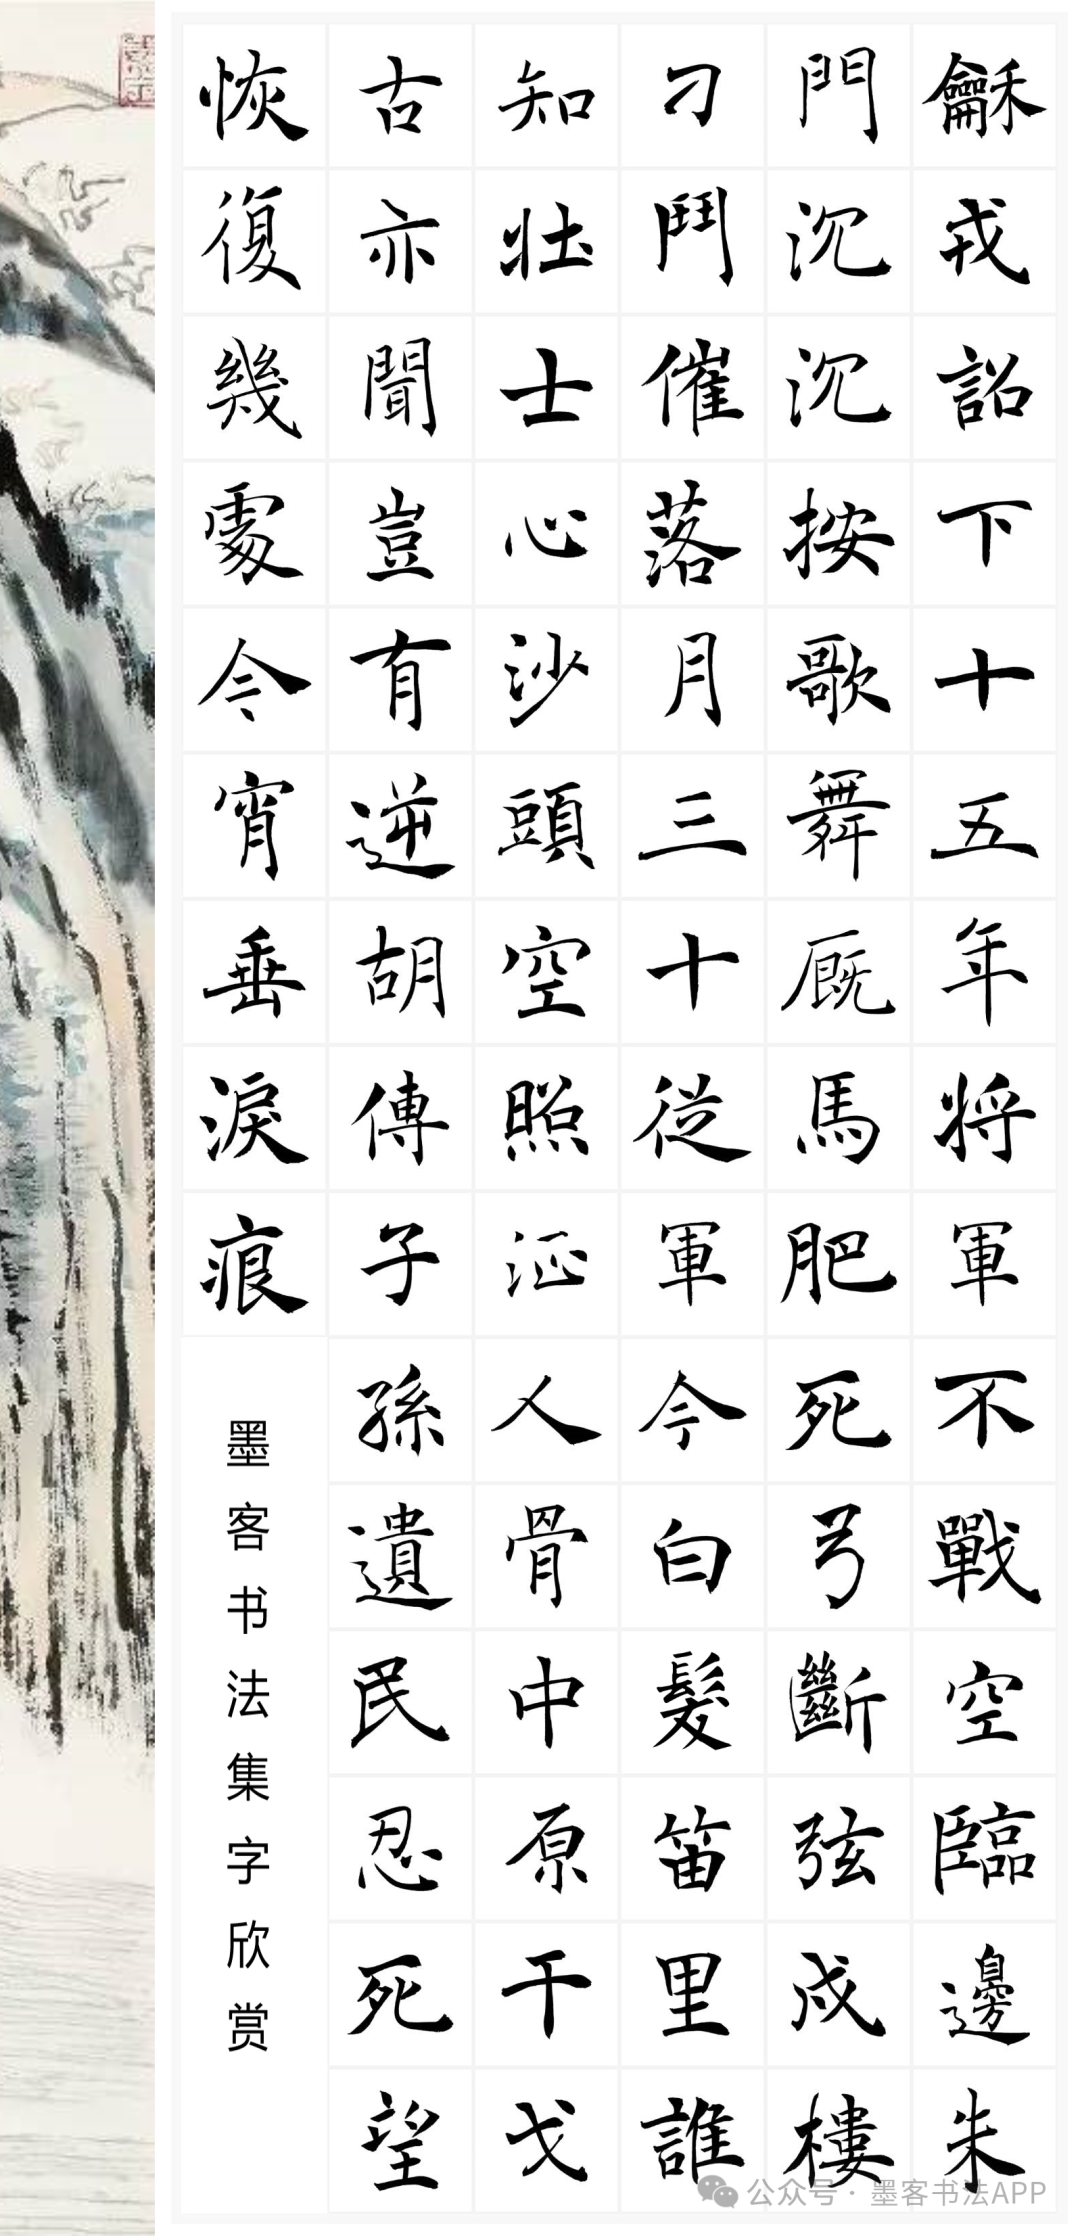 龢戎詔下十五年将軍不戰空臨邊朱
門沉沉按歌舞厩馬肥死弓斷弦戍樓
刁鬥催落月三十從軍今白髮笛里誰
知壯士心沙頭空照征人骨中原干戈
古亦聞豈有逆胡傳子孫遺民忍死望
恢復幾處今宵垂淚痕
墨客书法集字欣赏
公众号·墨客书法APP